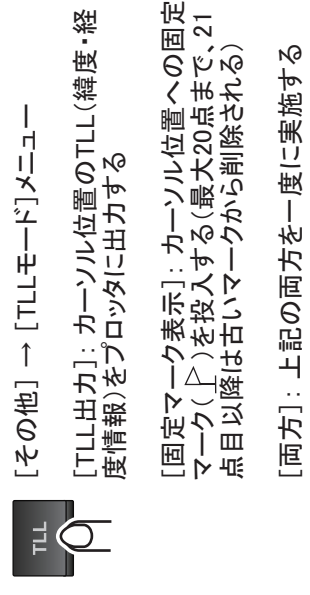 TLL
[その他] → [TLLモード]メニュー
[TLL出力]: カーソル位置のTLL(緯度・経
度情報)をプロッタに出力する
[固定マーク表示]: カーソル位置への固定
マーク( )を投入する(最大20点まで、21
点目以降は古いマークから削除される)
[両方]: 上記の両方を一度に実施する